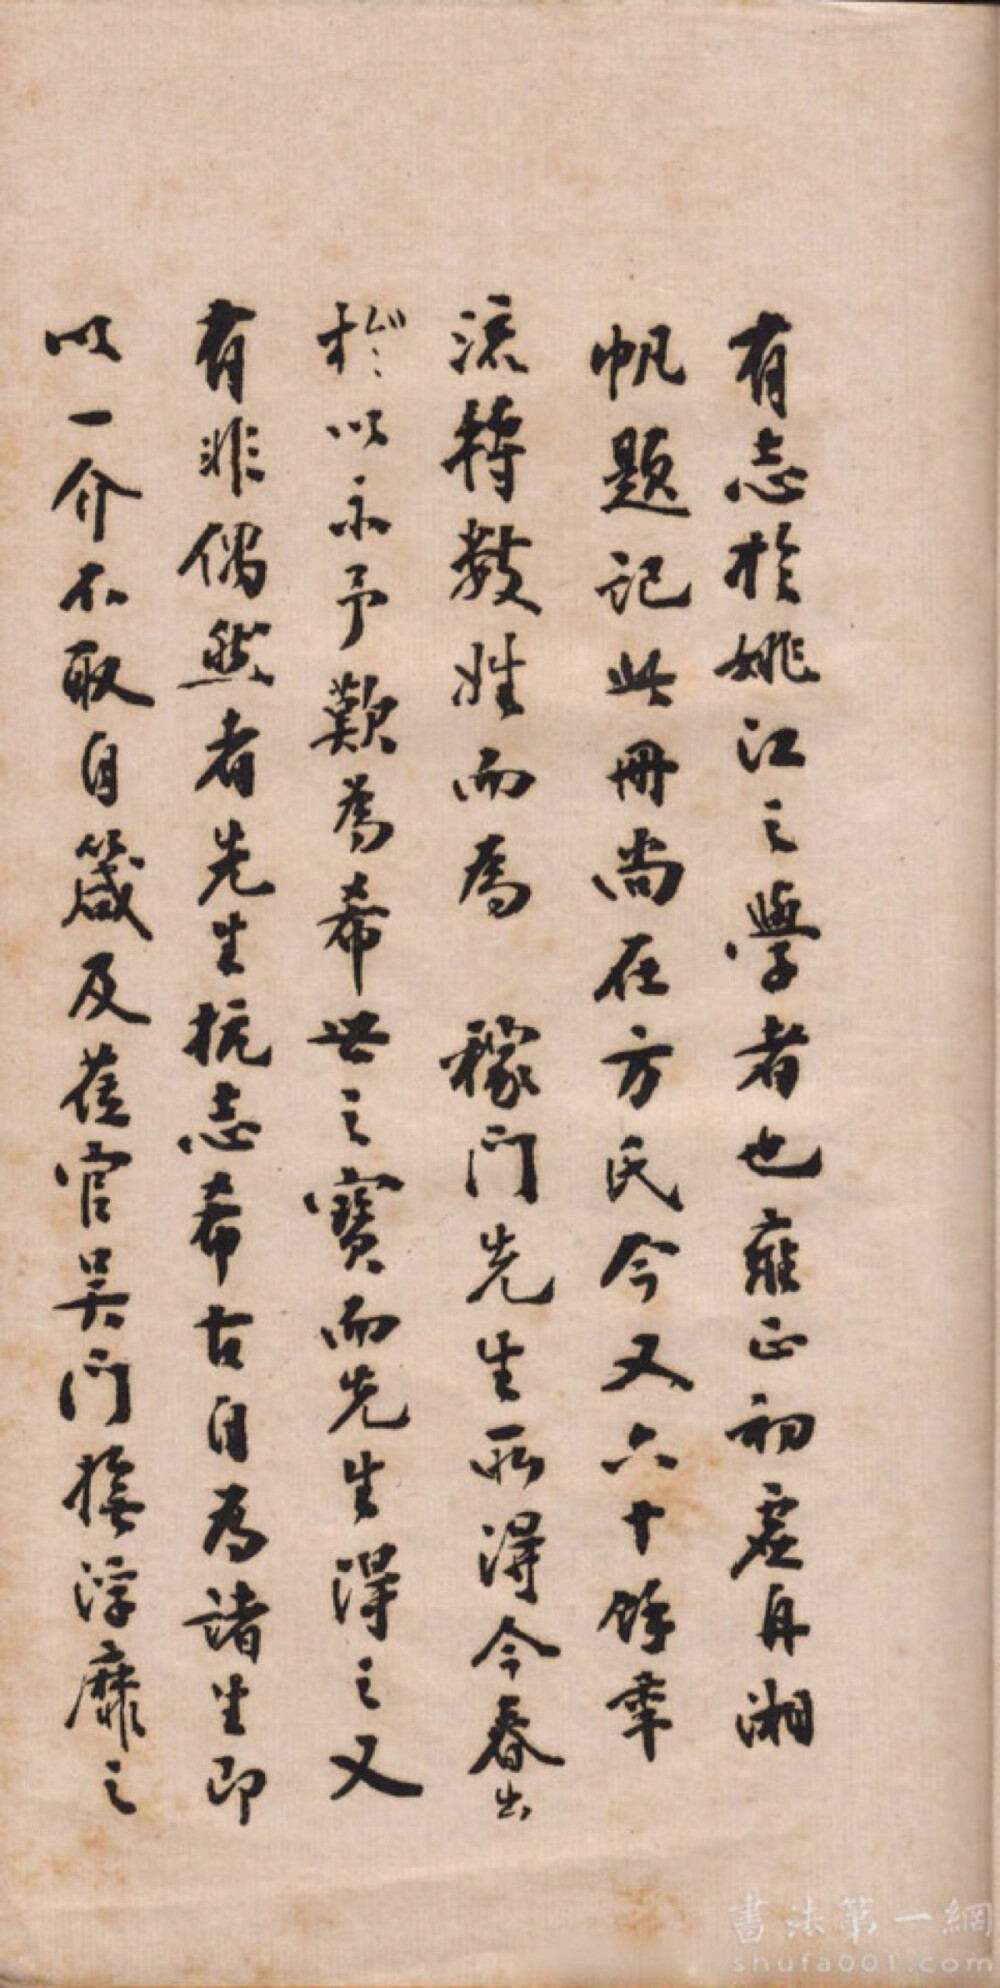 有志於姚江之學者也雍正初虛舟湘
帆題記此冊尚在方氏今又六十餘年
流轉數姓而為 稼門先生所得今春出
於以示予歎為希世之寶而先生得之又
有非偶然者先生抗志希古自為諸生即
以一介不取自箴及蒞官吳門撫浮靡之
書法第一網
shufa001.com